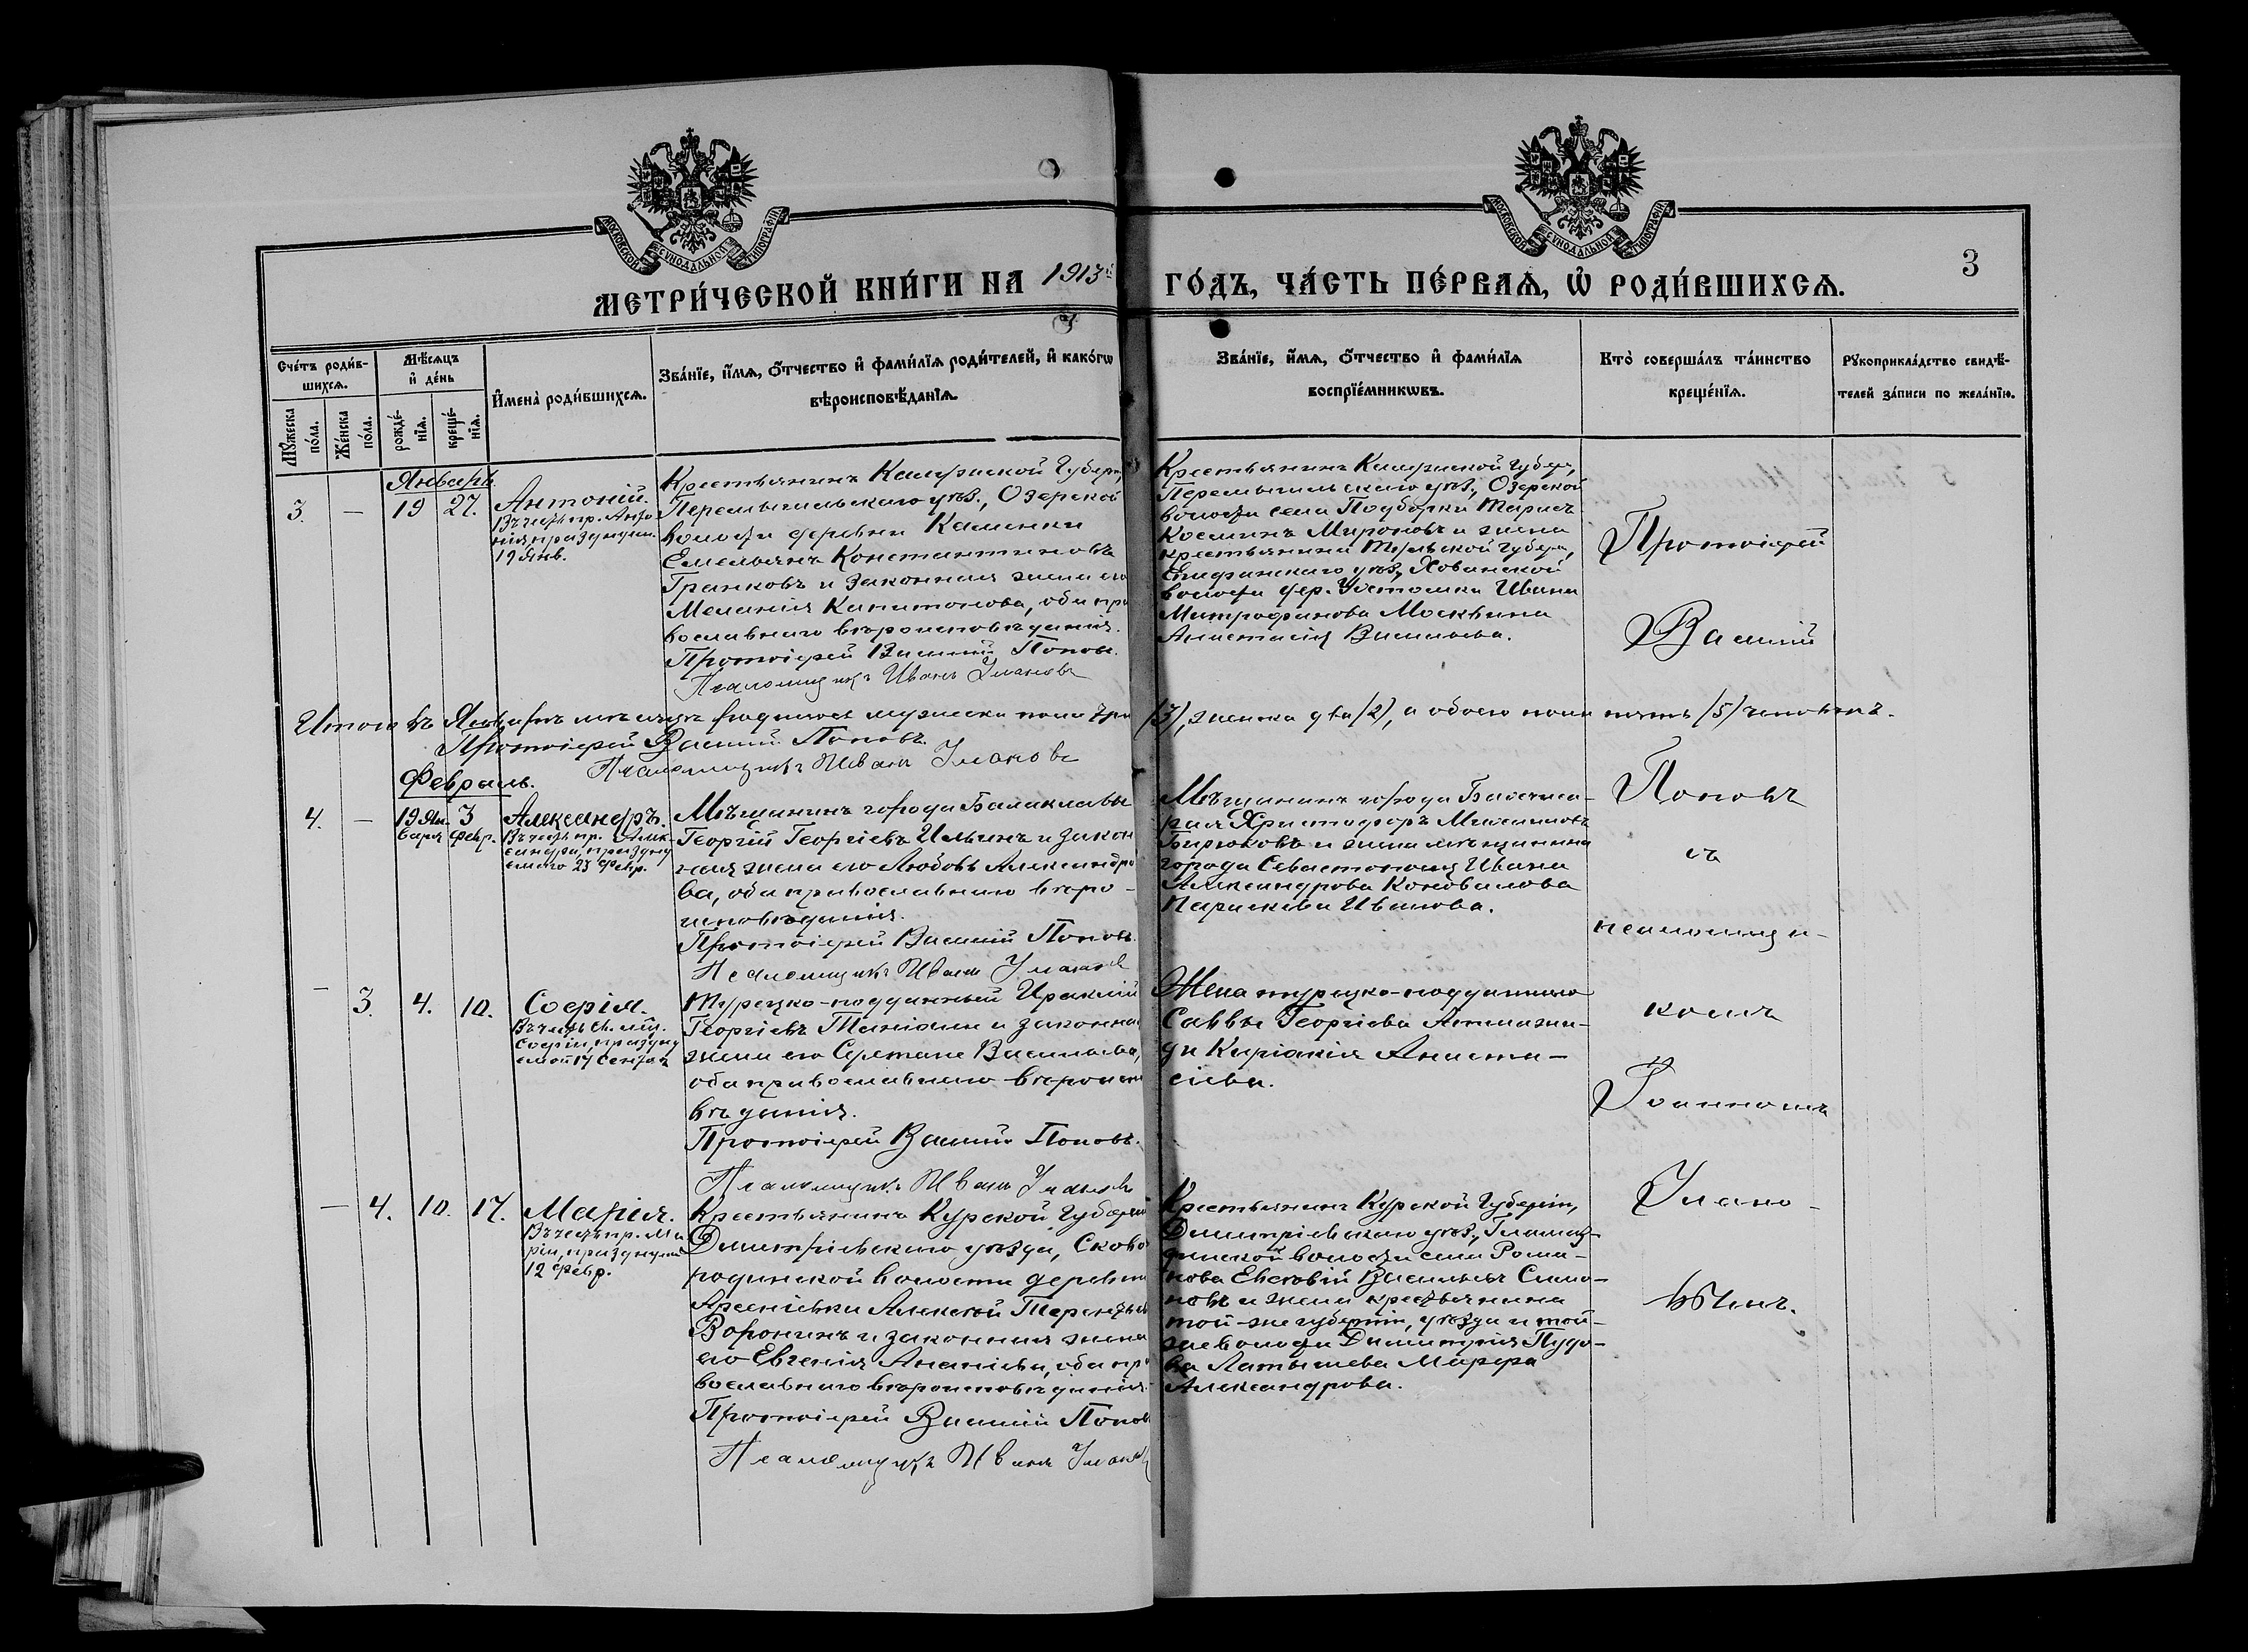 МОСКОВСКОЙ СѴНОДАЛЬНОЙ ТИПОГРАФІИ
МОСКОВСКОЙ СѴНОДАЛЬНОЙ ТИПОГРАФІИ
3
МЕТРИ́ЧЕСКОЙ КНИ́ГИ НА 1913й ГО́ДЪ, ЧА́СТЬ ПЕ́РВАѦ, Ѡ҆ РОДИ́ВШИХСѦ.
Сче́тъ роди́в-
шихсѧ.
Мꙋ́жеска по́ла.
Же́нска по́ла.
Мѣ́сѧцъ и҆ де́нь
рожде́-нїѧ.
креще́-нїѧ.
И҆мена̀ роди́вшихсѧ.
Зва́нїе, и҆́мѧ, ѻ҆́тчество и҆ фами́лїѧ роди́телей, и҆ како́гѡ
вѣроисповѣ́данїѧ.
Зва́нїе, и҆́мѧ, ѻ҆́тчество и҆ фами́лїѧ
воспрїе́мникѡвъ.
Кто̀ соверша́лъ та́инство
креще́нїѧ.
Рꙋкоприкла́дство свидѣ́-
телей за́писи по жела́нїю.
Январь
3. — 19 27. Антоній.
Въ честь пр. Анто-
нія, празднуем.
19 Янв.
Крестьянинъ Калужской Губерн,
Перемышльскаго уѣз., Озерской
волости деревни Каменки
Емельянъ Константиновъ
Гранковъ и законная жена его
Меланія Капитонова, оба пра
вославнаго вѣроисповѣданія.
Протоіерей Василій Попов.
Псаломщикъ Иванъ Улановъ
Крестьянинъ Калужской Губер,
Перемышльскаго уѣз., Озерской
волости села Подборки Тарас
Косминъ Мироновъ и жена
крестьянина Тульской Губерн,
Епифанскаго уѣз., Хованской
волости дер. Ивана
Митрофанова Москвина
Анастасія Васильева.
Итого въ Январѣ мѣсяцѣ родилось мужеска пола три /3/, женска два /2/, а обоего пола пять /5/ человѣкъ.
Протоіерей Василій Поповъ.
Псаломщикъ Иванъ Улановъ
Февраль.
4. — 19 Ян- 3 Александръ.
варя февр. Въ честь пр. Алек-
сандра, праздну
емаго 23 Февр.
Мѣщанинъ города Балаклавы
Георгій Георгіевъ Ильинъ и закон
ная жена его Любовь Александро
ва, оба православнаго вѣро-
исповѣданія.
Протоіерей Василій Поповъ.
Псаломщикъ Иванъ Улановъ
Мѣщанинъ города Бахчиса-
рая Христофоръ Михаиловъ
Бирюковъ и жена мѣщанина
города Севастополя Ивана
Александрова Коновалова
Параскева Иванова.
— 3. 4. 10. Софія.
Въ честь св. мц.
Софіи, праздну
емой 17 Сентяб.
Турецко-подданный Ираклій
Георгіевъ и законная
жена его Васильева,
оба православнаго вѣроиспо
вѣданія.
Протоіерей Василій Поповъ.
Псаломщикъ Иванъ Улановъ
Жена турецко-подданнаго
Саввы Георгіева
ди Киріакія Анаста-
сіева.
— 4. 10. 17. Марія.
Въ честь пр. Ма
ріи, празднуемой
12 февр.
Крестьянинъ Курской Губерніи
Дмитріевскаго уѣзда, Сково
родинской волости деревни
Арсеніевки Алексѣй Терентьев
Воронинъ и законная жена
его Евгенія Ананіева, оба пра
вославнаго вѣроисповѣданія.
Протоіерей Василій Попов
Псаломщикъ Иванъ Уланов
Крестьянинъ Курской Губерніи,
Дмитріевскаго уѣз.,
динской волости села Рома-
нова Евсевій Васильевъ Симо-
новъ и жена крестьянина
той-же губерніи, уѣзда и той-
же волости Димитрія Пудо-
ва Латышева Марфа
Александрова.
Протоіерей
Василій
Поповъ
съ
псаломщи-
комъ
Іоанномъ
Улано-
вымъ.